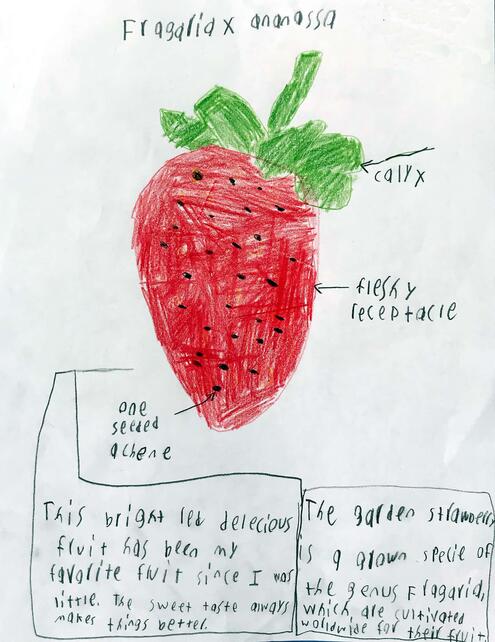 Fragaria x ananassa
calyx
fleshy
receptacle
one
seeded
achene
This bright red delecious
fruit has been my
favorite fruit since I was
little. The sweet taste always
makes things better.
The garden strawberry
is a grown specie of
the genus Fragaria,
which are cultivated
worldwide for their fruit